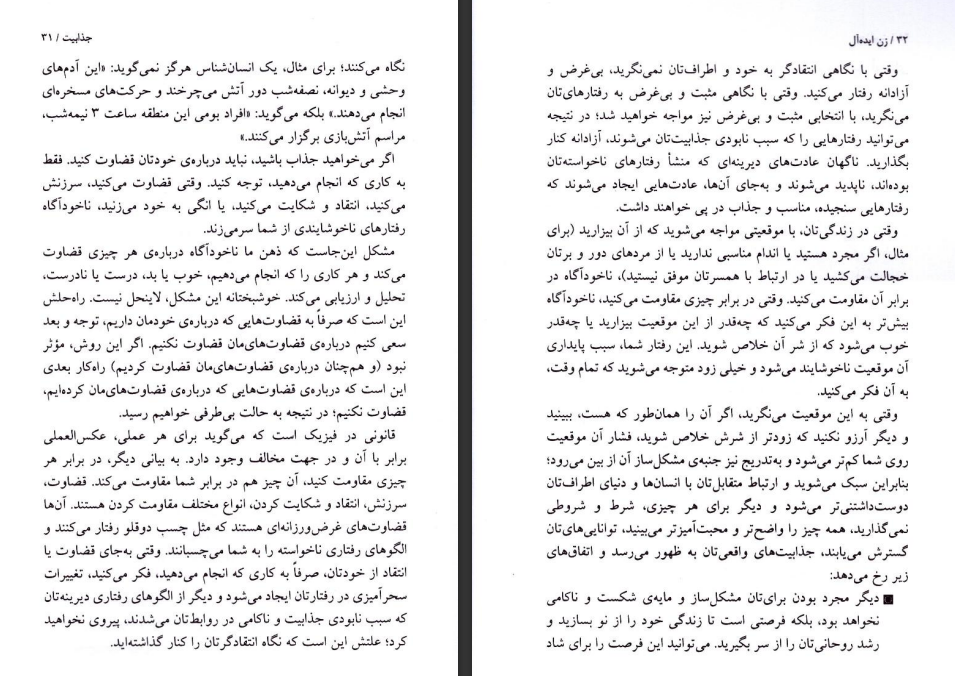 جذابیت / ۳۱
نگاه می‌کنند؛ برای مثال، یک انسان‌شناس هرگز نمی‌گوید: «این آدم‌های
وحشی و دیوانه، نصفه‌شب دور آتش می‌چرخند و حرکت‌های مسخره‌ای
انجام می‌دهند.» بلکه می‌گوید: «افراد بومی این منطقه ساعت ۳ نیمه‌شب،
مراسم آتش‌بازی برگزار می‌کنند.»
اگر می‌خواهید جذاب باشید، نباید درباره‌ی خودتان قضاوت کنید. فقط
به کاری که انجام می‌دهید، توجه کنید. وقتی قضاوت می‌کنید، سرزنش
می‌کنید، انتقاد و شکایت می‌کنید، یا انگی به خود می‌زنید، ناخودآگاه
رفتارهای ناخوشایندی از شما سرمی‌زند.
مشکل این‌جاست که ذهن ما ناخودآگاه درباره‌ی هر چیزی قضاوت
می‌کند و هر کاری را که انجام می‌دهیم، خوب یا بد، درست یا نادرست،
تحلیل و ارزیابی می‌کند. خوشبختانه این مشکل، لاینحل نیست. راه‌حلش
این است که صرفاً به قضاوت‌هایی که درباره‌ی خودمان داریم، توجه و بعد
سعی کنیم درباره‌ی قضاوت‌های‌مان قضاوت نکنیم. اگر این روش، مؤثر
نبود (و هم‌چنان درباره‌ی قضاوت‌های‌مان قضاوت کردیم) راه‌کار بعدی
این است که درباره‌ی قضاوت‌هایی که درباره‌ی قضاوت‌های‌مان کرده‌ایم،
قضاوت نکنیم؛ در نتیجه به حالت بی‌طرفی خواهیم رسید.
قانونی در فیزیک است که می‌گوید برای هر عملی، عکس‌العملی
برابر با آن و در جهت مخالف وجود دارد. به بیانی دیگر، در برابر هر
چیزی مقاومت کنید، آن چیز هم در برابر شما مقاومت می‌کند. قضاوت،
سرزنش، انتقاد و شکایت کردن، انواع مختلف مقاومت کردن هستند. آن‌ها
قضاوت‌های غرض‌ورزانه‌ای هستند که مثل چسب دوقلو رفتار می‌کنند و
الگوهای رفتاری ناخواسته را به شما می‌چسبانند. وقتی به‌جای قضاوت یا
انتقاد از خودتان، صرفاً به کاری که انجام می‌دهید، فکر می‌کنید، تغییرات
سحرآمیزی در رفتارتان ایجاد می‌شود و دیگر از الگوهای رفتاری دیرینه‌تان
که سبب نابودی جذابیت و ناکامی در روابط‌تان می‌شدند، پیروی نخواهید
کرد؛ علتش این است که نگاه انتقادگرتان را کنار گذاشته‌اید.
۳۲ / زن ایده‌آل
وقتی با نگاهی انتقادگر به خود و اطراف‌تان نمی‌نگرید، بی‌غرض و
آزادانه رفتار می‌کنید. وقتی با نگاهی مثبت و بی‌غرض به رفتارهای‌تان
می‌نگرید، با انتخابی مثبت و بی‌غرض نیز مواجه خواهید شد؛ در نتیجه
می‌توانید رفتارهایی را که سبب نابودی جذابیت‌تان می‌شوند، آزادانه کنار
بگذارید. ناگهان عادت‌های دیرینه‌ای که منشأ رفتارهای ناخواسته‌تان
بوده‌اند، ناپدید می‌شوند و به‌جای آن‌ها، عادت‌هایی ایجاد می‌شوند که
رفتارهایی سنجیده، مناسب و جذاب در پی خواهند داشت.
وقتی در زندگی‌تان، با موقعیتی مواجه می‌شوید که از آن بیزارید (برای
مثال، اگر مجرد هستید یا اندام مناسبی ندارید یا از مردهای دور و برتان
خجالت می‌کشید یا در ارتباط با همسرتان موفق نیستید)، ناخودآگاه در
برابر آن مقاومت می‌کنید. وقتی در برابر چیزی مقاومت می‌کنید، ناخودآگاه
بیش‌تر به این فکر می‌کنید که چه‌قدر از این موقعیت بیزارید یا چه‌قدر
خوب می‌شود که از شر آن خلاص شوید. این رفتار شما، سبب پایداری
آن موقعیت ناخوشایند می‌شود و خیلی زود متوجه می‌شوید که تمام وقت،
به آن فکر می‌کنید.
وقتی به این موقعیت می‌نگرید، اگر آن را همان‌طور که هست، ببینید
و دیگر آرزو نکنید که زودتر از شرش خلاص شوید، فشار آن موقعیت
روی شما کم‌تر می‌شود و به‌تدریج نیز جنبه‌ی مشکل‌ساز آن از بین می‌رود؛
بنابراین سبک می‌شوید و ارتباط متقابل‌تان با انسان‌ها و دنیای اطراف‌تان
دوست‌داشتنی‌تر می‌شود و دیگر برای هر چیزی، شرط و شروطی
نمی‌گذارید، همه چیز را واضح‌تر و محبت‌آمیزتر می‌بینید، توانایی‌های‌تان
گسترش می‌یابند، جذابیت‌های واقعی‌تان به ظهور می‌رسد و اتفاق‌های
زیر رخ می‌دهد:
◙ دیگر مجرد بودن برای‌تان مشکل‌ساز و مایه‌ی شکست و ناکامی
نخواهد بود، بلکه فرصتی است تا زندگی خود را از نو بسازید و
رشد روحانی‌تان را از سر بگیرید. می‌توانید این فرصت را برای شاد